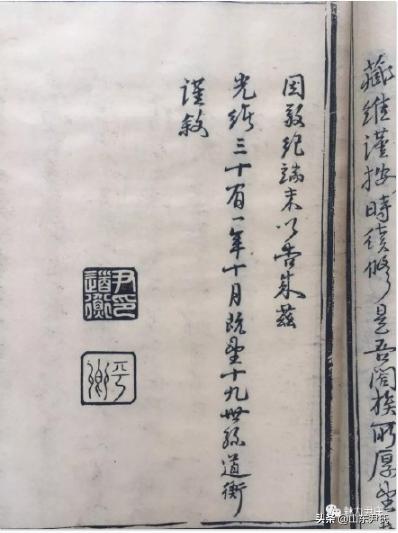 藏維謹按時續修是吾闔族所厚望
因敬紀端末以告來茲
光緒三十有一年十月既望十九世孫道衡
謹敘
尹印道衡
平卿
魅力尹氏
头条@山东尹氏